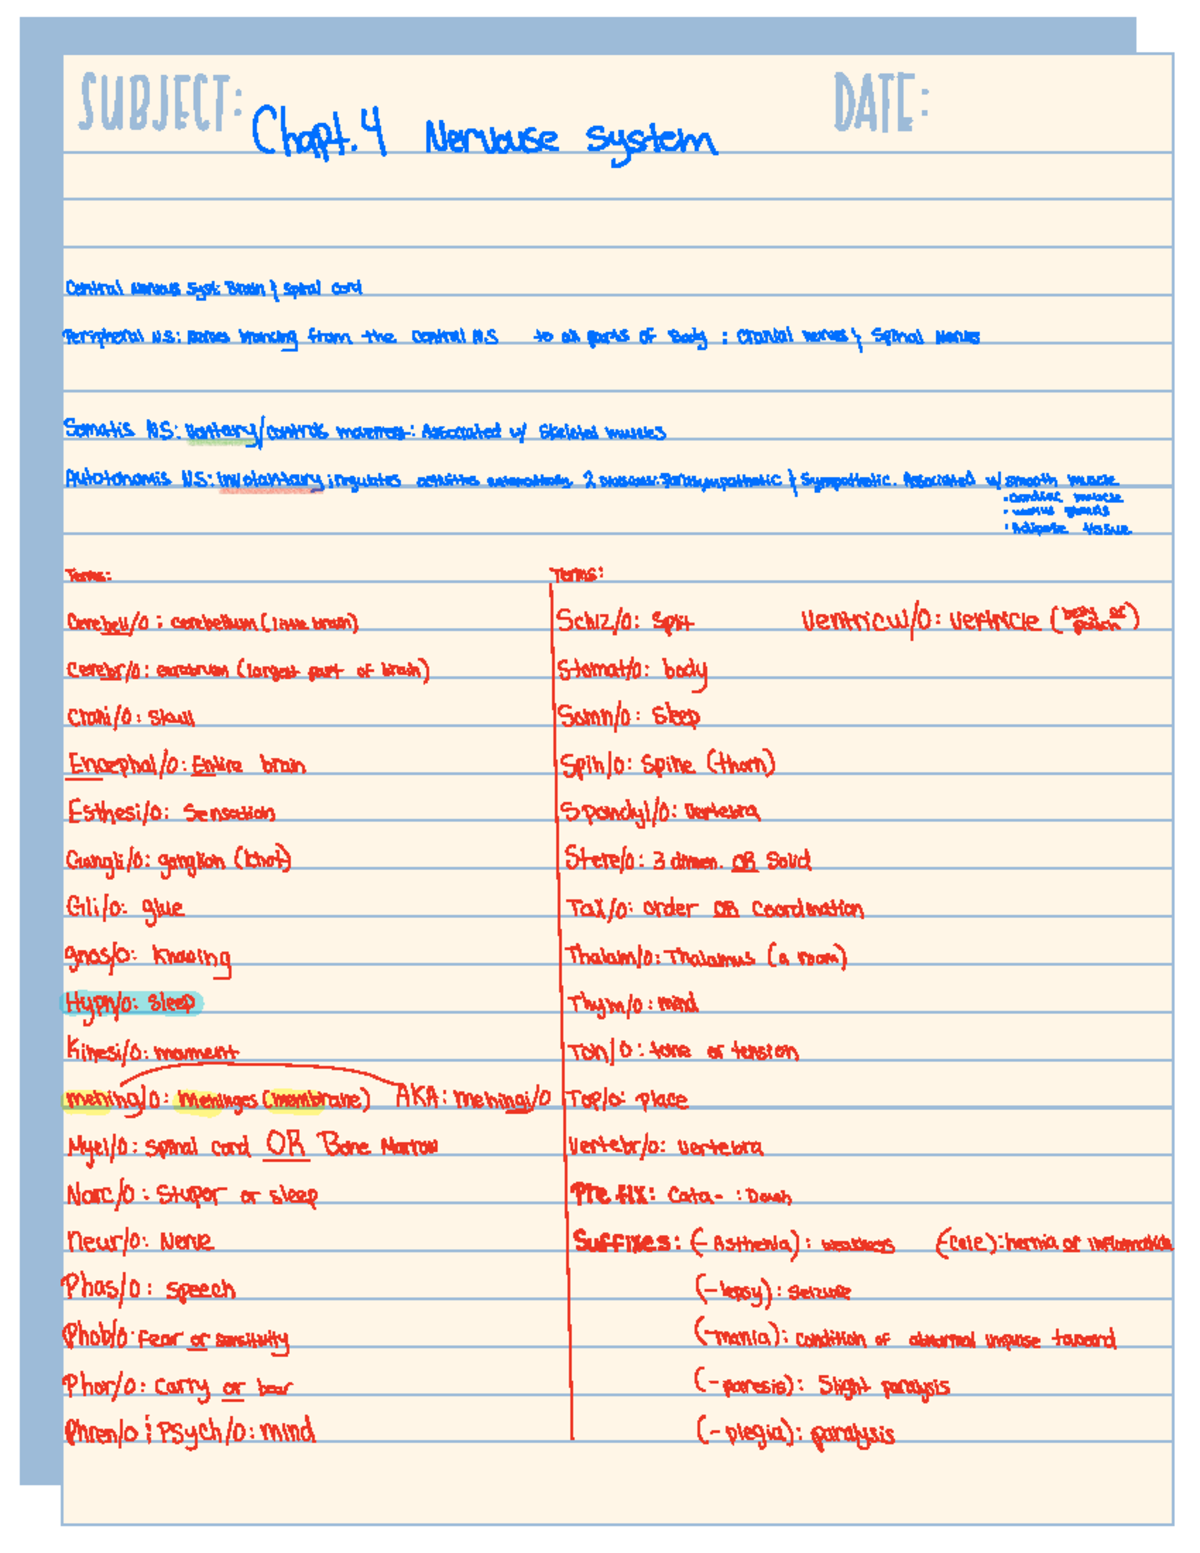 SUBJECT: Chapt. 4 Nervouse system DATE:
Central Nervous Syst: Brain & Spinal cord
Peripheral N.S: nerves brancing from the central N.S to all parts of Body : Cranial nerves & Spinal Nerves
Somatis NS: Vontary/controls movement: Associated w/ Skeletal muscles
Autotonomis NS: Involantary regulates activities automatically 2 Divisions: Parasympathetic & Sympathetic. Associated w/ smooth muscle
· cardiac muscle
· glands
· Adipose tissue
Terms:
Cerebell/o : cerebellum (little brain)
Cerebr/o: cerebrum (largest part of brain)
Crani/o: skull
Encephal/o: Entire brain
Esthesi/o: Sensation
Gangli/o: ganglion (knot)
Gli/o: glue
gnos/o: knowing
Hypn/o: sleep
Kinesi/o: moment
mening/o: Meninges (membrane) AKA: meningi/o
Myel/o: spinal cord OR Bone Marrow
Narc/o: Stupor or sleep
Neur/o: Nerve
Phas/o: speech
Phob/o: Fear or sensitivity
Phor/o: Carry or bear
Phren/o & PSych/o: mind
Terms:
Schiz/o: Split Ventricul/o: ventricle (belly or pouch)
Stomat/o: body
Somn/o: sleep
Spin/o: Spine (thorn)
Spondyl/o: vertebra
Stere/o: 3 dimen. OR Solid
Tax/o: order OR Coordination
Thalam/o: Thalamus (a room)
Thym/o: mind
Ton/o: tone or tension
Top/o: place
Vertebr/o: vertebra
Prefix: Cata- : Down
Suffixes: (-Asthenia): weakness (-cele): hernia or inflamation
(-lepsy): seizure
(-mania): condition of abnormal impulse toward
(-paresis): Slight paralysis
(-plegia): paralysis